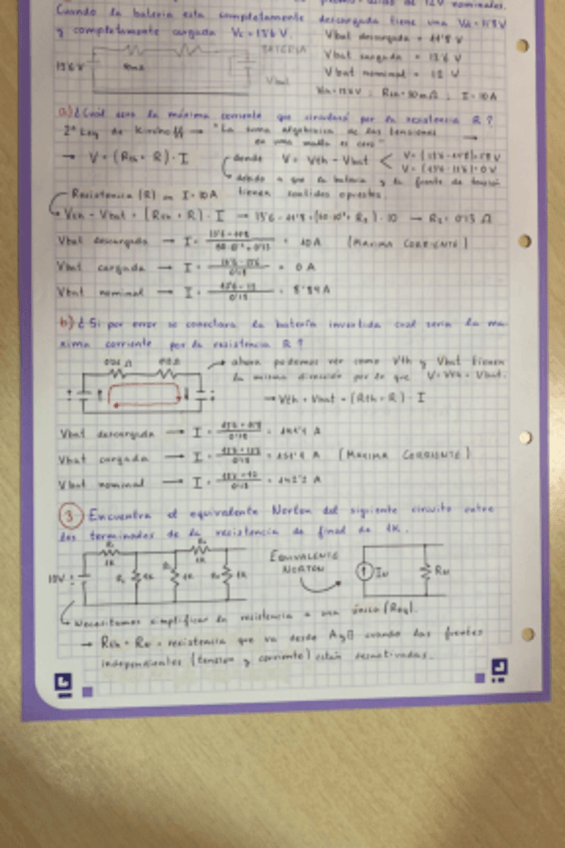 plomo-ácido de 12V nominales.
Cuando la batería esta completamente descargada tiene una Vd=11'8V
y completamente cargada Vc=13'6V.
Vbat descargada = 11'8 V
BATERIA
13'6V
50mΩ
Vbat
Vbat cargada = 13'6 V
Vbat nominal = 12 V
I=10A
a) ¿Cuál sera la máxima corriente que circulará por la resistencia R?
2ª Ley de Kirchoff → "La suma algebraica de las tensiones
en una malla es cero"
→ V = (Rth + R) · I
donde V = Vth - Vbat
debido a que la batería y la fuente de tensión
tienen sentidos opuestos.
Resistencia (R) en I=10A
Vth - Vbat = (Rth + R) · I → 13'6 - 11'8 = (50·10⁻³ + R) · 10 → R = 0'13 Ω
Vbat descargada → I = = 10A (MAXIMA CORRIENTE)
Vbat cargada → I = = 0 A
Vbat nominal → I = = 8'89A
b) ¿Si por error se conectara la batería invertida cual sería la ma-
xima corriente por la resistencia R?
ahora podemos ver como Vth y Vbat tienen
la misma dirección por lo que V=Vth+Vbat.
→ Vth + Vbat = (Rth + R) · I
Vbat descargada → I = = 141'1 A
Vbat cargada → I = = 151'1 A (MAXIMA CORRIENTE)
Vbat nominal → I = = 142'2 A
3 Encuentra el equivalente Norton del siguiente circuito entre
los terminales de la resistencia de final de 1K.
10V
1K
1K
1K
1K
EQUIVALENTE
NORTON
IN
RN
Necesitamos simplificar la resistencia a una única (Req).
→ Rth = RN = resistencia que va desde A y B cuando las fuentes
independientes (tension y corriente) están desactivadas.